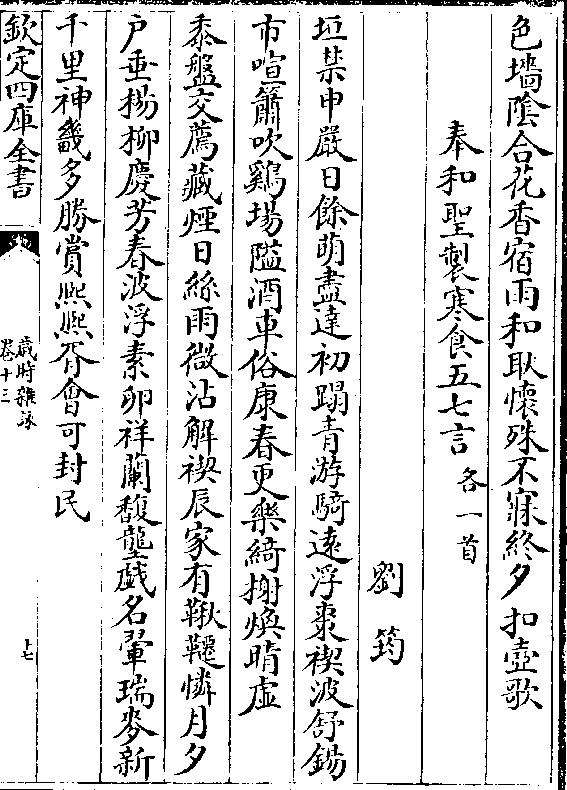 色墻陰合花香宿雨和耿懷殊不寐終夕扣壺歌
奉和聖製寒食五七言各一首
劉筠
垣禁申嚴日餘萌盡達初蹋青游騎遠浮棗禊波舒錫
市喧簫吹鷄場隘酒車俗康春更樂綺榭煥晴虛
黍盤交薦藏煙日絲雨微沾解禊辰家有鞦韆憐月夕
户垂楊柳慶芳春波浮素卵祥蘭馥壟戯名翬瑞麥新
千里神畿多勝賞熙熙胥會可封民
欽定四庫全書
歳時雜詠
卷十三
十七